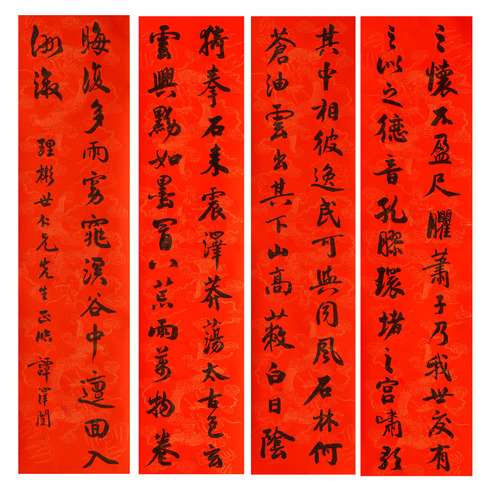 之懷不盈尺臞蕭子乃我世交有
之似之德音孔膠環堵之宮嘯歌
其中相彼逸民可與同風石林何
蒼油雲出其下山高蔽白日陰
猗拳石來震澤莽蕩太古色玄
雲興黝如墨冒八荒雨萬物卷
晦復多雨雺窕溪谷中邅回入
洲漵
理彬世大兄先生正 譚澤闓